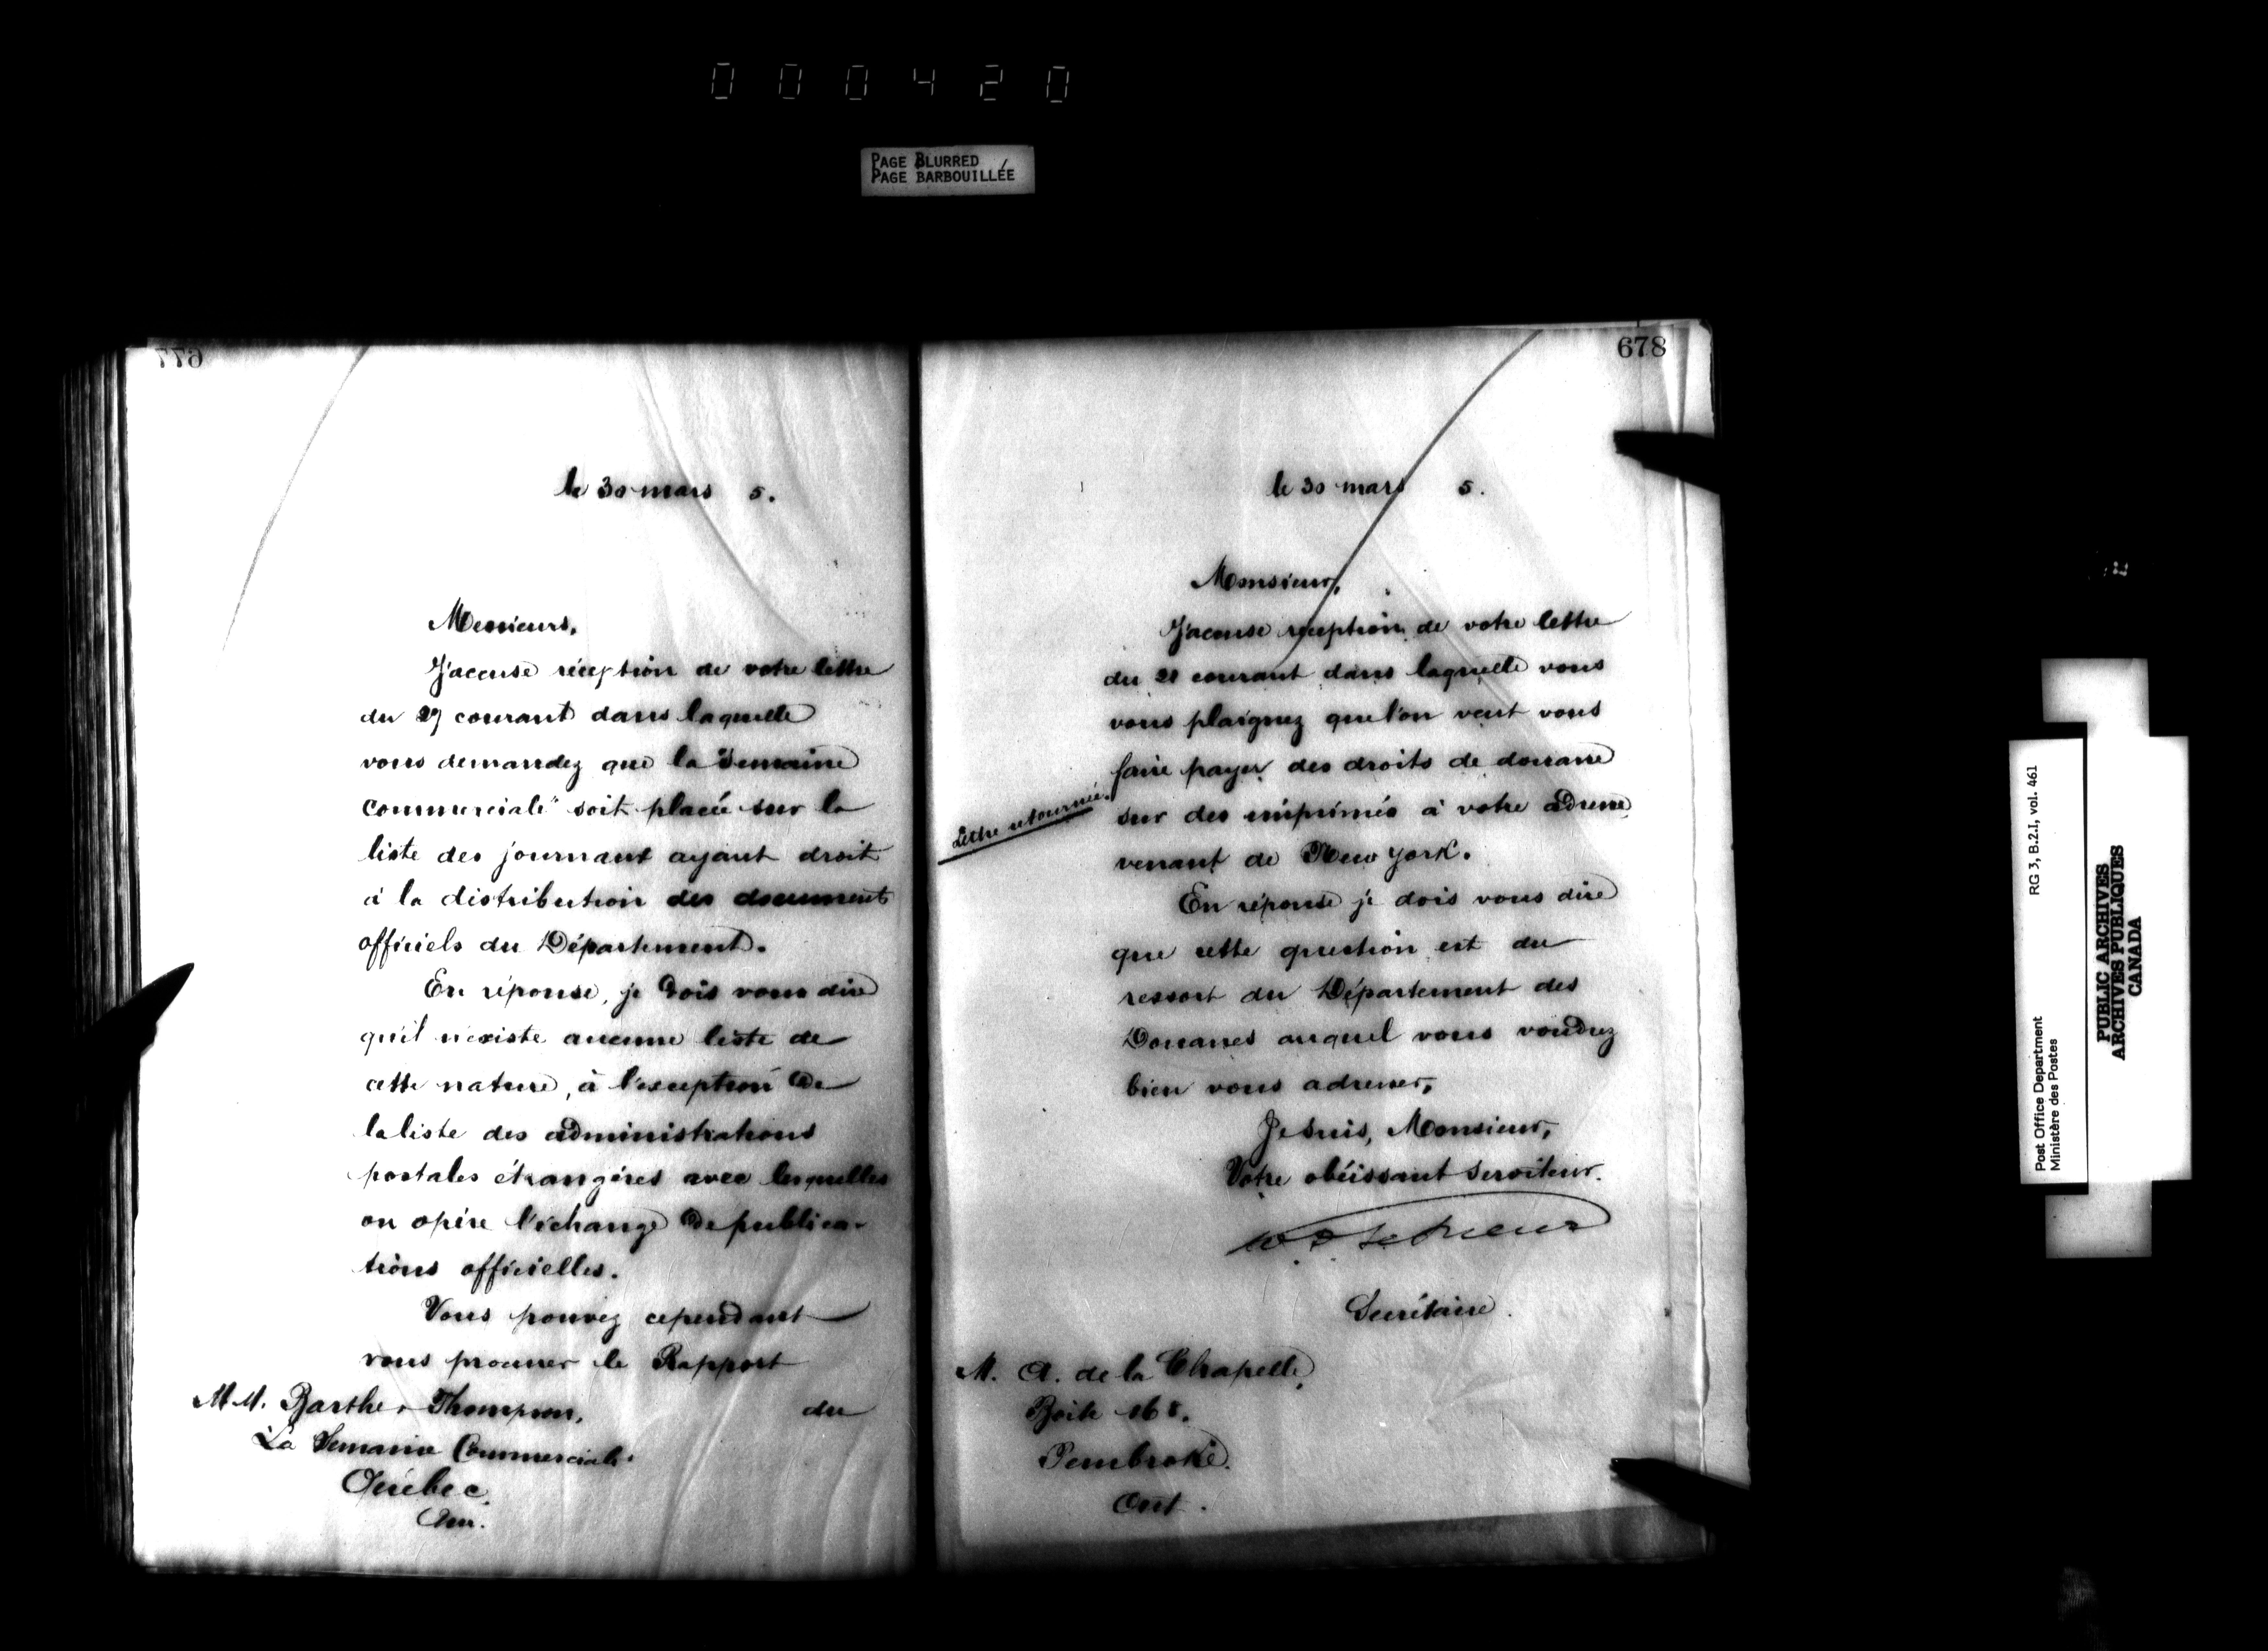 000420
PAGE BLURRED
PAGE BARBOUILLÉE
677
le 30 mars 5.
Messieurs,
J'accuse réception de votre lettre
du 27 courant dans laquelle
vous demandez que la "Semaine
Commerciale" soit placée sur la
liste des journaux ayant droit
à la distribution des documents
officiels du Département.
En réponse, je dois vous dire
qu'il n'existe aucune liste de
cette nature, à l'exception de
la liste des administrations
postales étrangères avec lesquelles
on opère l'échange de publica-
tions officielles.
Vous pouvez cependant
vous procurer le Rapport
du
MM. Barthe & Thompson,
La Semaine Commerciale
Québec.
Qu.
678
le 30 mars 5.
Monsieur,
J'accuse réception de votre lettre
du 28 courant dans laquelle vous
vous plaignez que l'on veut vous
faire payer des droits de douane
sur des imprimés à votre adresse
venant de New York.
Lettre retournée.
En réponse je dois vous dire
que cette question est du
ressort du Département des
Douanes auquel vous voudrez
bien vous adresser,
Je suis, Monsieur,
Votre obéissant serviteur.
Secrétaire.
M. A. de la Chapelle,
Boite 168.
Pembroke.
Ont.
Post Office Department
Ministère des Postes
RG 3, B.2.I, vol. 461
PUBLIC ARCHIVES
ARCHIVES PUBLIQUES
CANADA